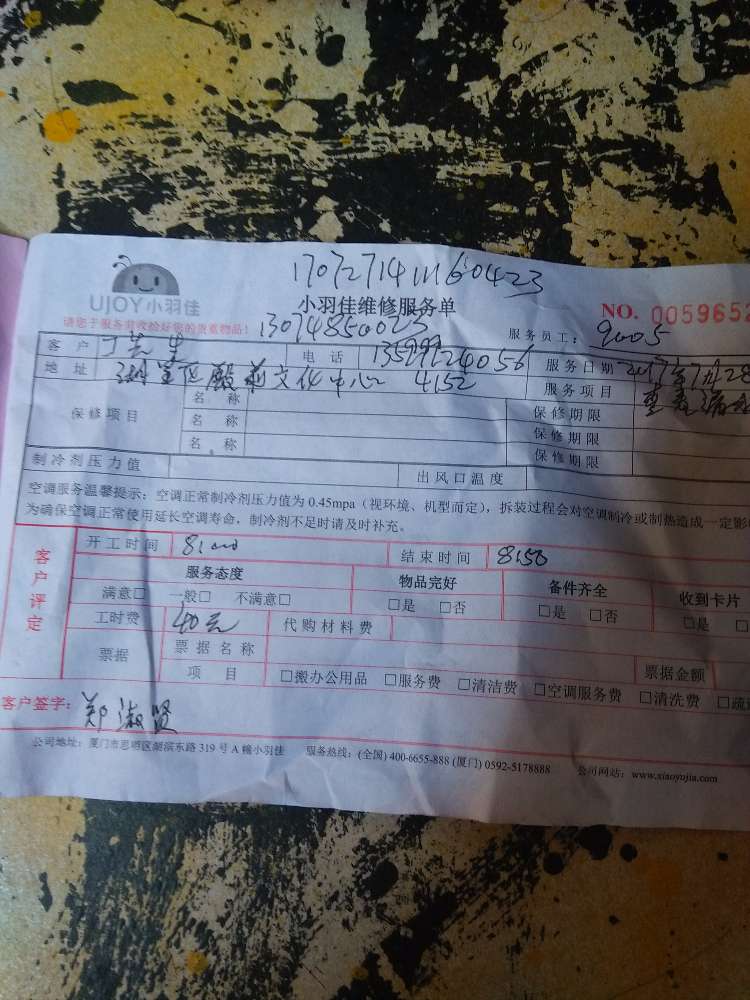 1707271411160423
UJOY小羽佳
小羽佳维修服务单
NO. 0059652
请您于服务前收捡好您的贵重物品!
13074850023
服务员工: 9005
客户 丁先生 电话 13599124056 服务日期 2017年7月28
地址 湖里区殿前文化中心 4152 服务项目
保修项目 名称 保修期限
名称 保修期限
名称 保修期限
制冷剂压力值 出风口温度
空调服务温馨提示: 空调正常制冷剂压力值为 0.45mpa (视环境、机型而定), 拆装过程会对空调制冷或制热造成一定影
为确保空调正常使用延长空调寿命, 制冷剂不足时请及时补充。
客户评定
开工时间 8:00 结束时间 8:50
服务态度 物品完好 备件齐全 收到卡片
满意□ 一般□ 不满意□ □是 □否 □是 □否 □是
工时费 40元 代购材料费
票据 票据名称 票据金额
项目 □搬办公用品 □服务费 □清洁费 □空调服务费 □清洗费 □疏
客户签字: 郑淑贤
公司地址: 厦门市思明区湖滨东路 319 号 A 幢小羽佳 服务热线: (全国) 400-6655-888 (厦门) 0592-5178888 公司网站: www.xiaoyujia.com